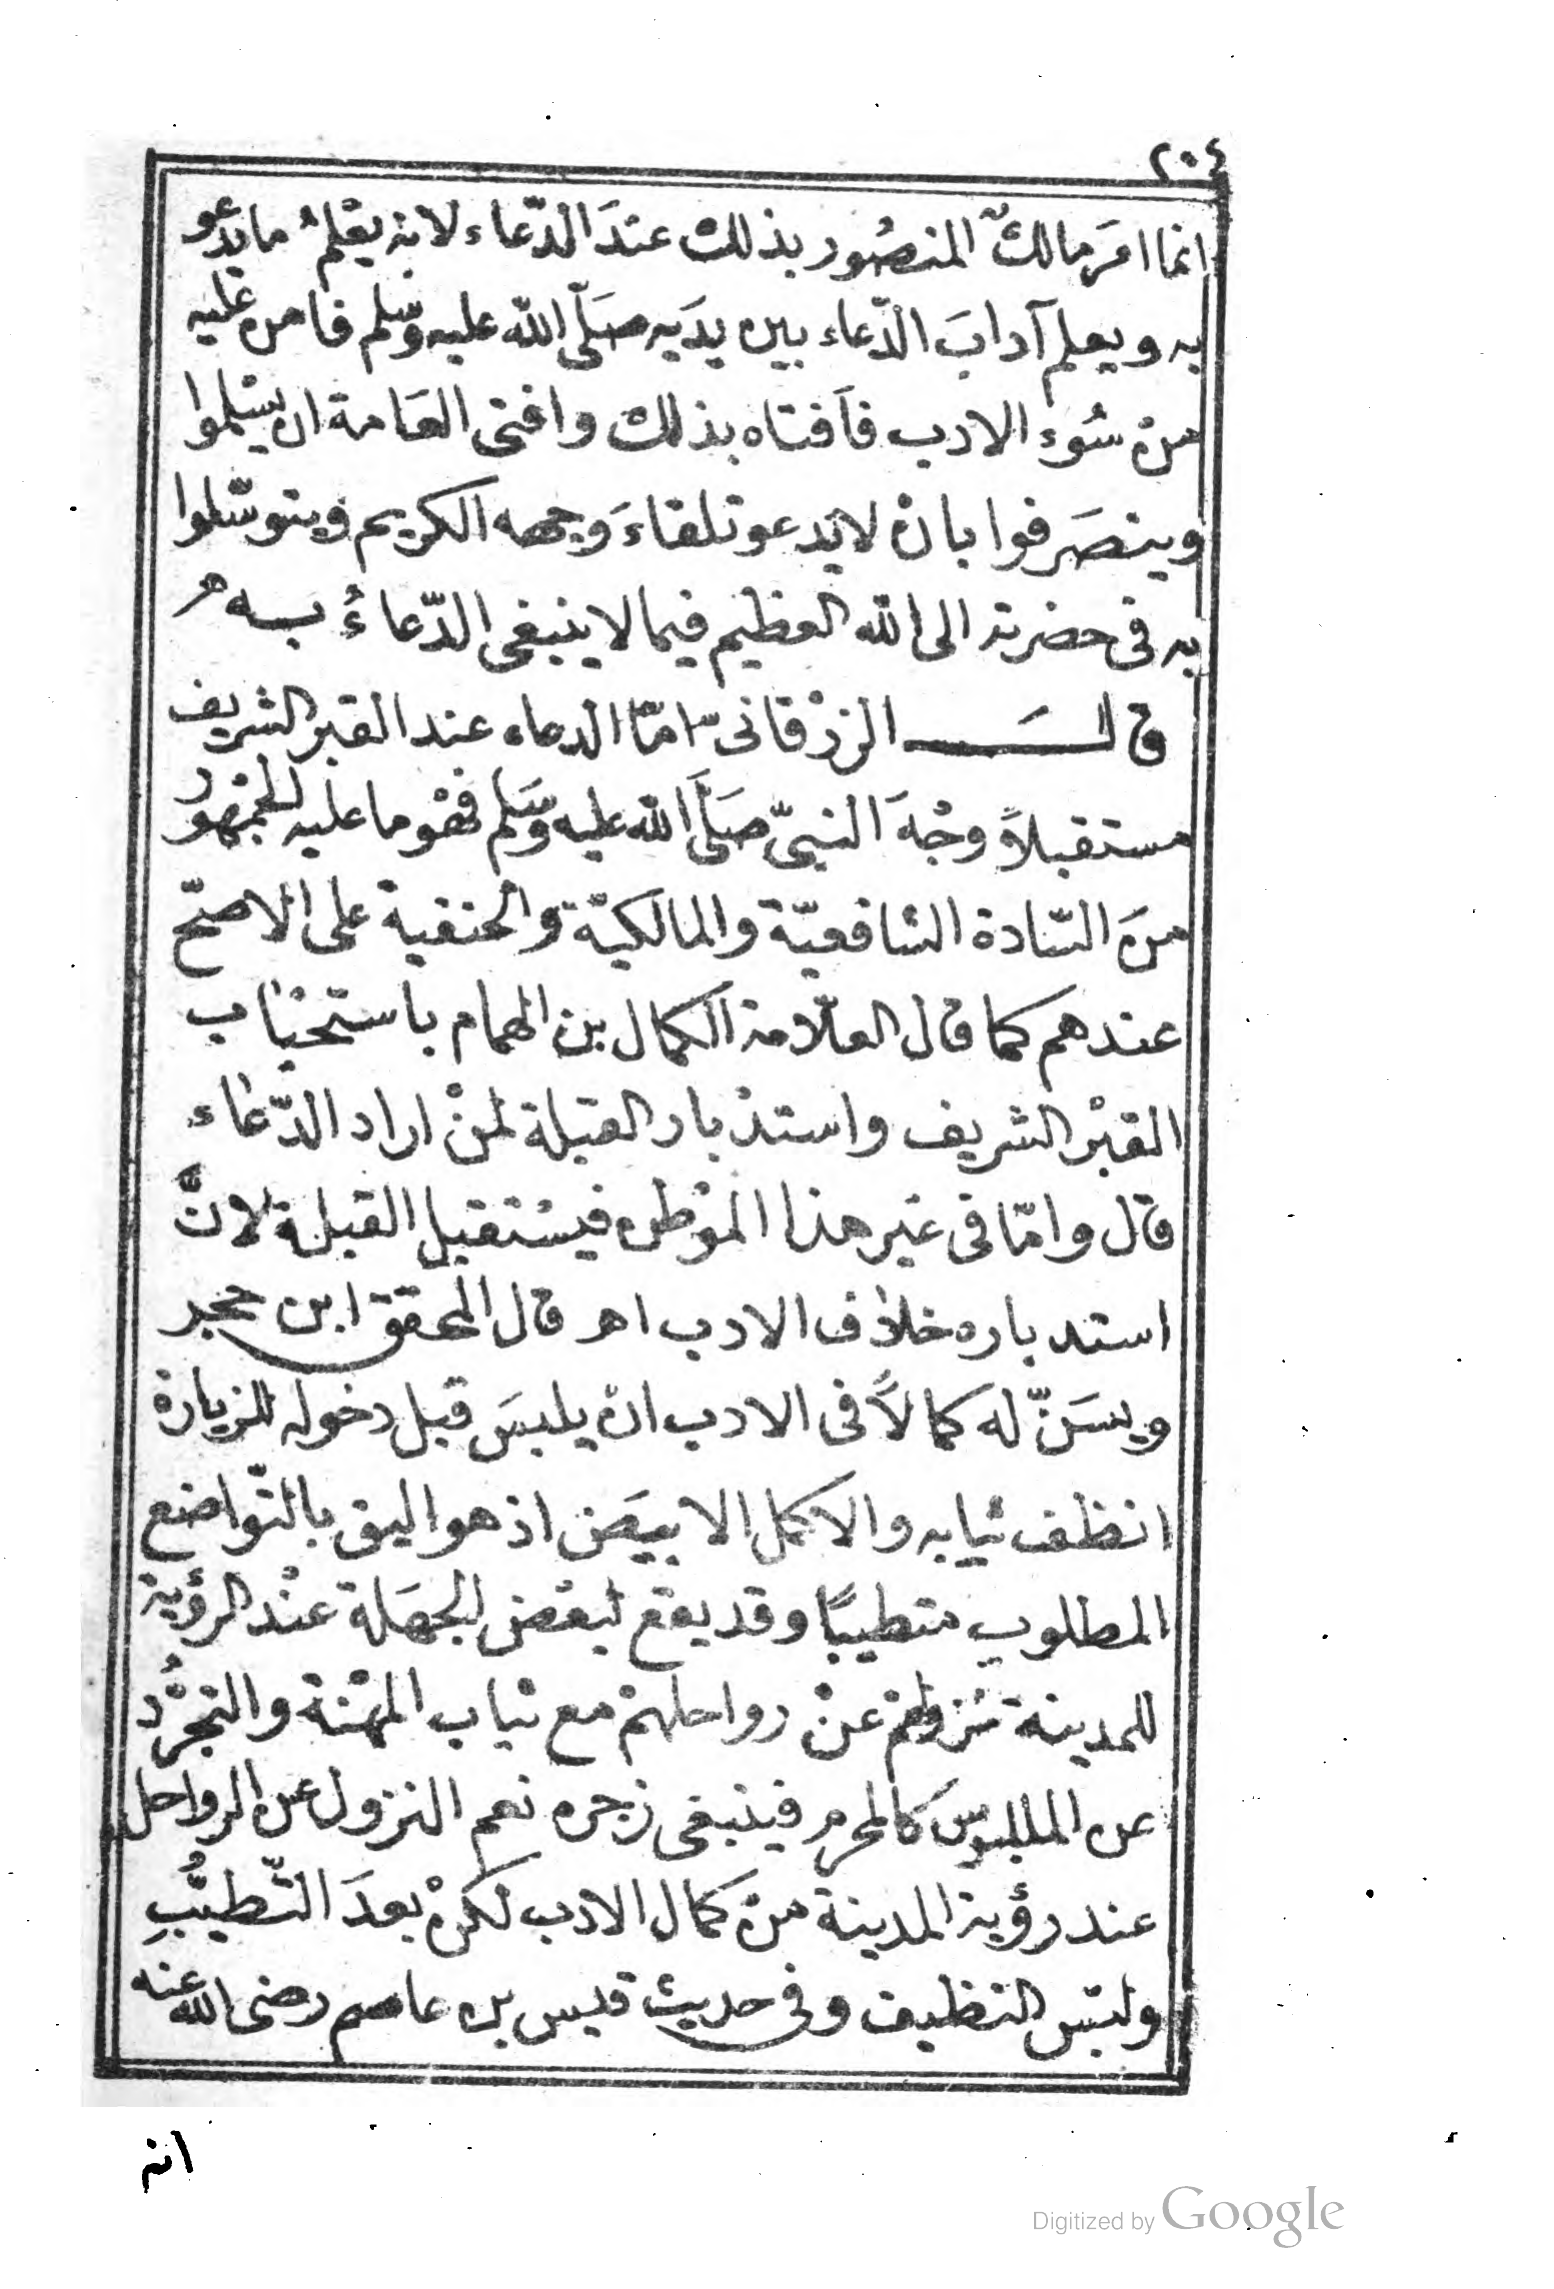 ٢٠٤
انما امَر مالكٌ المنصُور بذلك عندَ الدّعاء لانه يعْلمُ ما يدعو
به ويعلم آدابَ الدّعاء بين يدَيه صَلّى الله عليه وسَلم فامن عليه
منْ سُوء الادب فاَفتاه بذلك وافتى العَامة ان يسَلموا
وينصَرفوا بانْ لا يدعو تلقاءَ وجهه الكريم ويتوسّلوا
به في حضرته الى الله العظيم فيما لا ينبغى الدّعاءُ به
قالَ الزرْقانى امّا الدعاء عند القبر الشريف
مستقبلاً وجْهَ النبيّ صَلَّى الله عليه وسَلم فهْو ما عليه الجمْهور
منَ السّادة الشافعيّة والمالكيّة والحنفية على الاصحّ
عندهم كما قال العلّامة الكمال بن الهمام باستحباب
القبْر الشريف واستدْبار القبلة لمنْ اراد الدّعاء
قال وامّا فى غير هذا الموْطن فيسْتقبل القبلة لانَّ
استدباره خلاف الادب اهـ قال المحقق ابن حجر
ويسَنّ له كمالاً فى الادب ان يلبسَ قبل دخوله للزيارة
انظف ثيابه والاكمل الابيَض اذ هو اليق بالتّواضع
المطلوب متطيبًا وقد يقع لبعْض الجهَلة عنْد الرؤية
للمدينة نزولهمْ عنْ رواحلهمْ مع ثياب المهْنة والتجرُّد
عن الملبوس كالمحرم فينبغى زجره نعم النزول عن الرواحل
عند رؤية المدينة منْ كمال الادب لكنْ بعدَ التّطيُّبِ
ولبْس النظيف وفى حديث قيس بن عاصم رضى الله عنه
انه
Digitized by Google